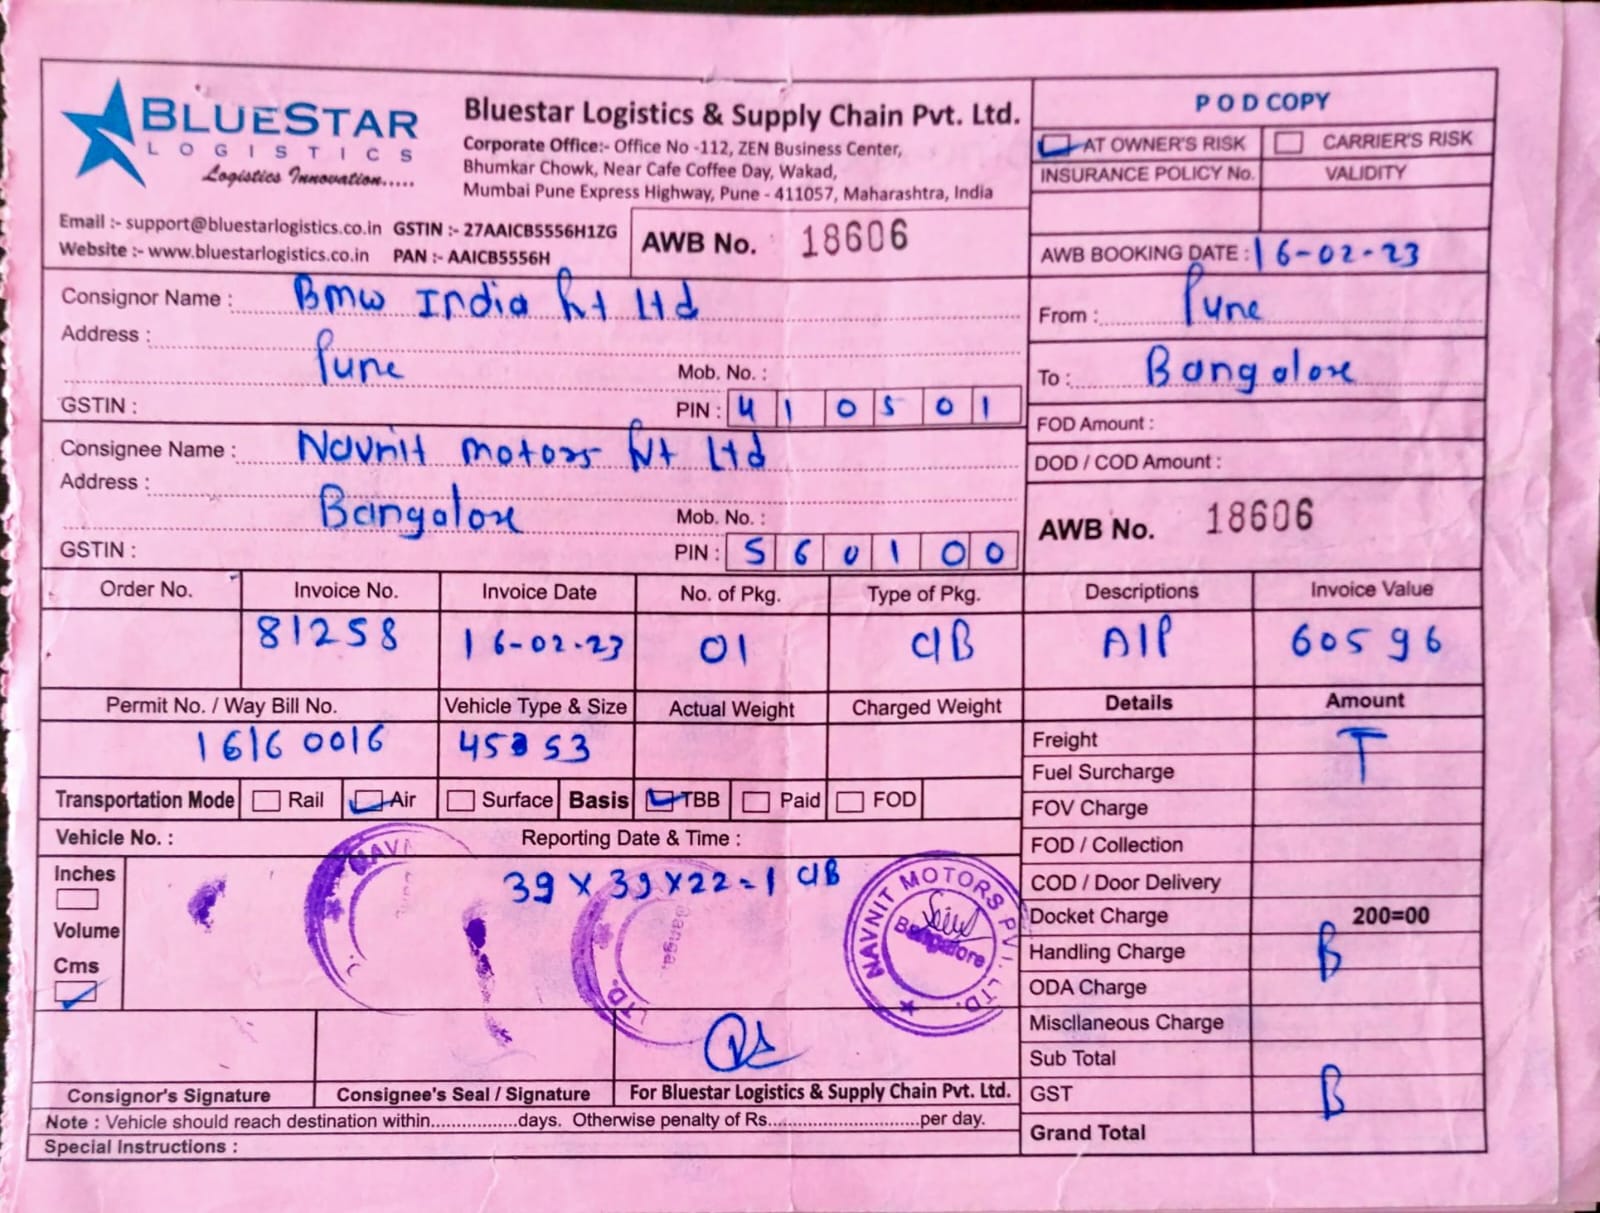 BLUESTAR
LOGISTICS
Logistics Innovation.....
Bluestar Logistics & Supply Chain Pvt. Ltd.
Corporate Office:- Office No -112, ZEN Business Center,
Bhumkar Chowk, Near Cafe Coffee Day, Wakad,
Mumbai Pune Express Highway, Pune - 411057, Maharashtra, India
Email :- support@bluestarlogistics.co.in GSTIN :- 27AAICB5556H1ZG
Website :- www.bluestarlogistics.co.in PAN :- AAICB5556H
AWB No. 18606
POD COPY
AT OWNER'S RISK CARRIER'S RISK
INSURANCE POLICY No. VALIDITY
AWB BOOKING DATE : 16-02-23
Consignor Name : BMW India Pvt Ltd
Address :
Pune Mob. No. :
GSTIN : PIN : 410501
From : Pune
To : Bangalore
Consignee Name : Navnit Motors Pvt Ltd
Address :
Bangalore Mob. No. :
GSTIN : PIN : 560100
FOD Amount :
DOD / COD Amount :
AWB No. 18606
Order No. Invoice No. Invoice Date No. of Pkg. Type of Pkg. Descriptions Invoice Value
81258 16-02-23 01 C/B A/P 60596
Permit No. / Way Bill No. Vehicle Type & Size Actual Weight Charged Weight Details Amount
16160016
Freight T
Fuel Surcharge
Transportation Mode Rail Air Surface Basis TBB Paid FOD
FOV Charge
Vehicle No. : Reporting Date & Time :
FOD / Collection
Inches
Volume
Cms
39 X 39 X 22 = 1 C/B
NAVNIT MOTORS PVT. LTD.
Bangalore
COD / Door Delivery
Docket Charge 200=00
Handling Charge B
ODA Charge
Miscllaneous Charge
Sub Total
GST B
Grand Total
Consignor's Signature Consignee's Seal / Signature For Bluestar Logistics & Supply Chain Pvt. Ltd.
Note : Vehicle should reach destination within.................days. Otherwise penalty of Rs..............................per day.
Special Instructions :